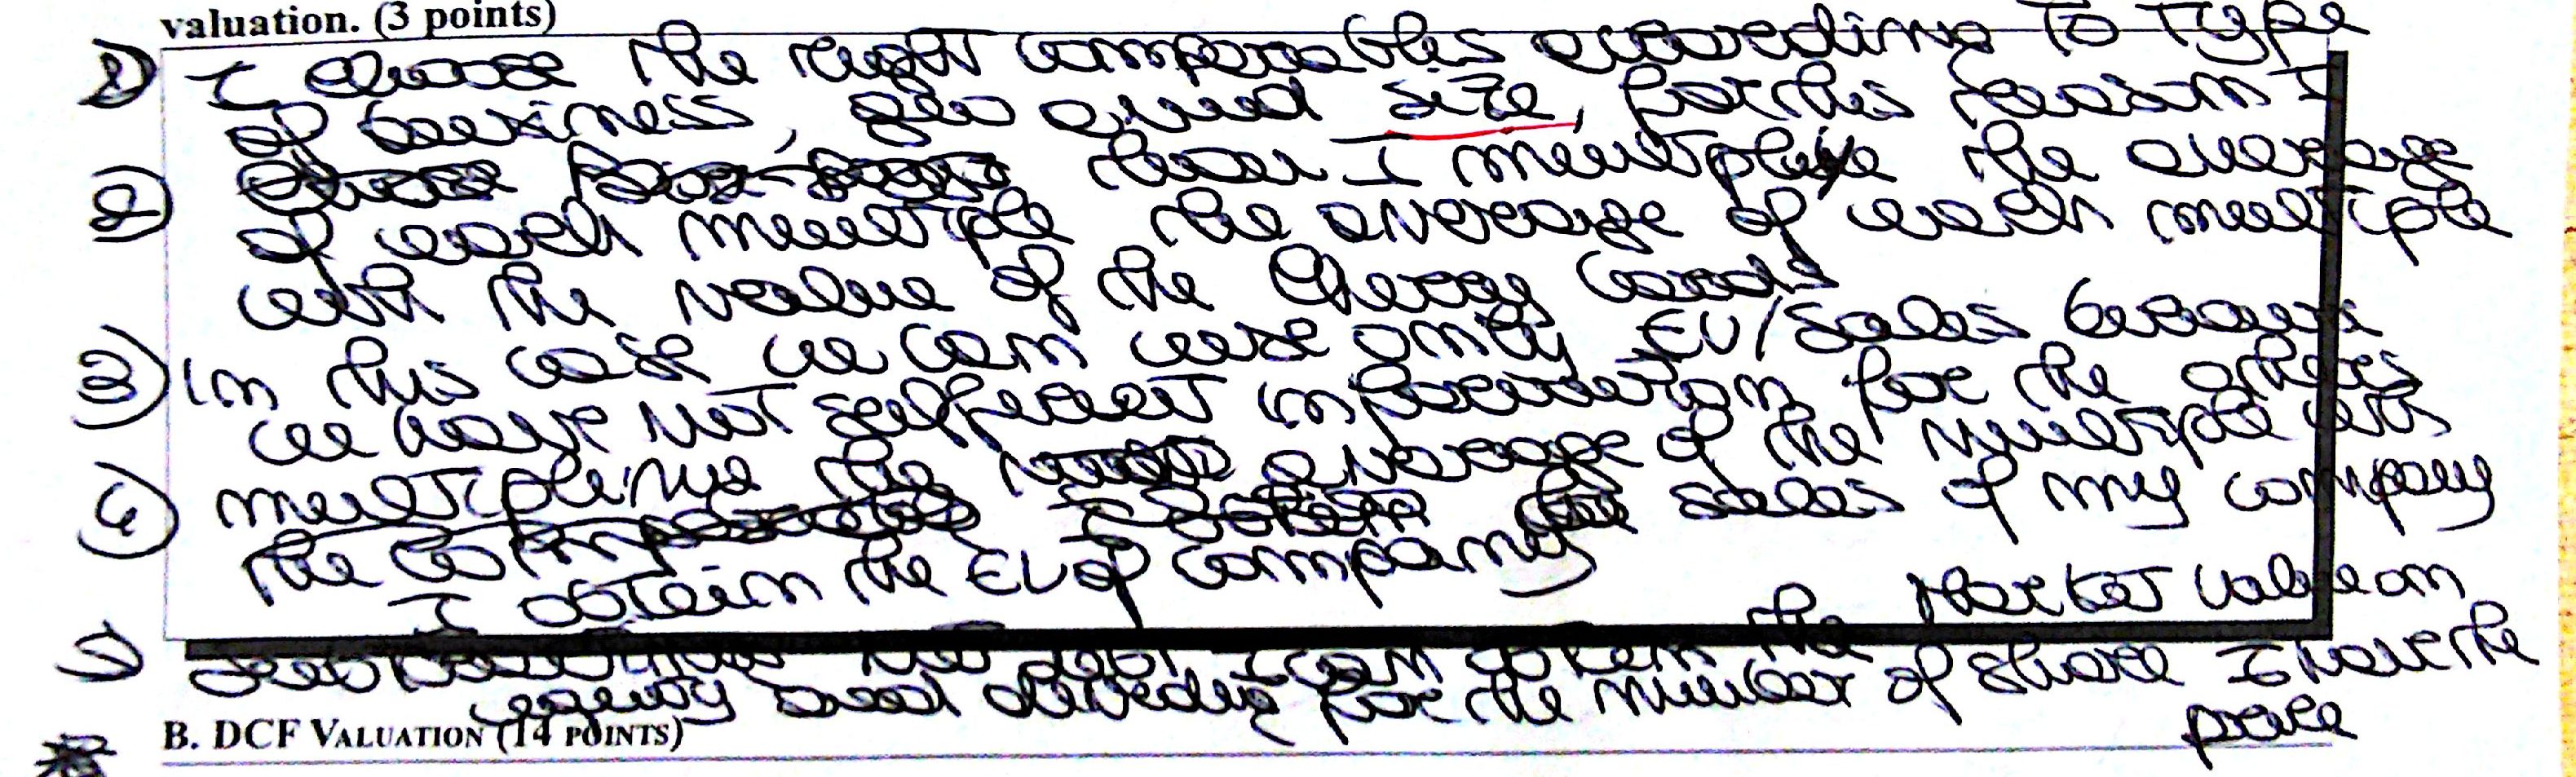 valuation. (3 points)
1) I choose the right comparables according to type
of business, geo and size, for this reason I
2) choose then I multiplye the average
of each multiple the average of each multiple
with the value of the Cherry Cards
3) In this case we can use only EV/Sales because
we have not sufficient information for the others
4) multipling the average of the multiple with
the sales of my company
I obtain the EV of company
5) net debt I can obtain the Market value on
equity and dividing for the number of share I have the
price
B. DCF VALUATION (14 POINTS)